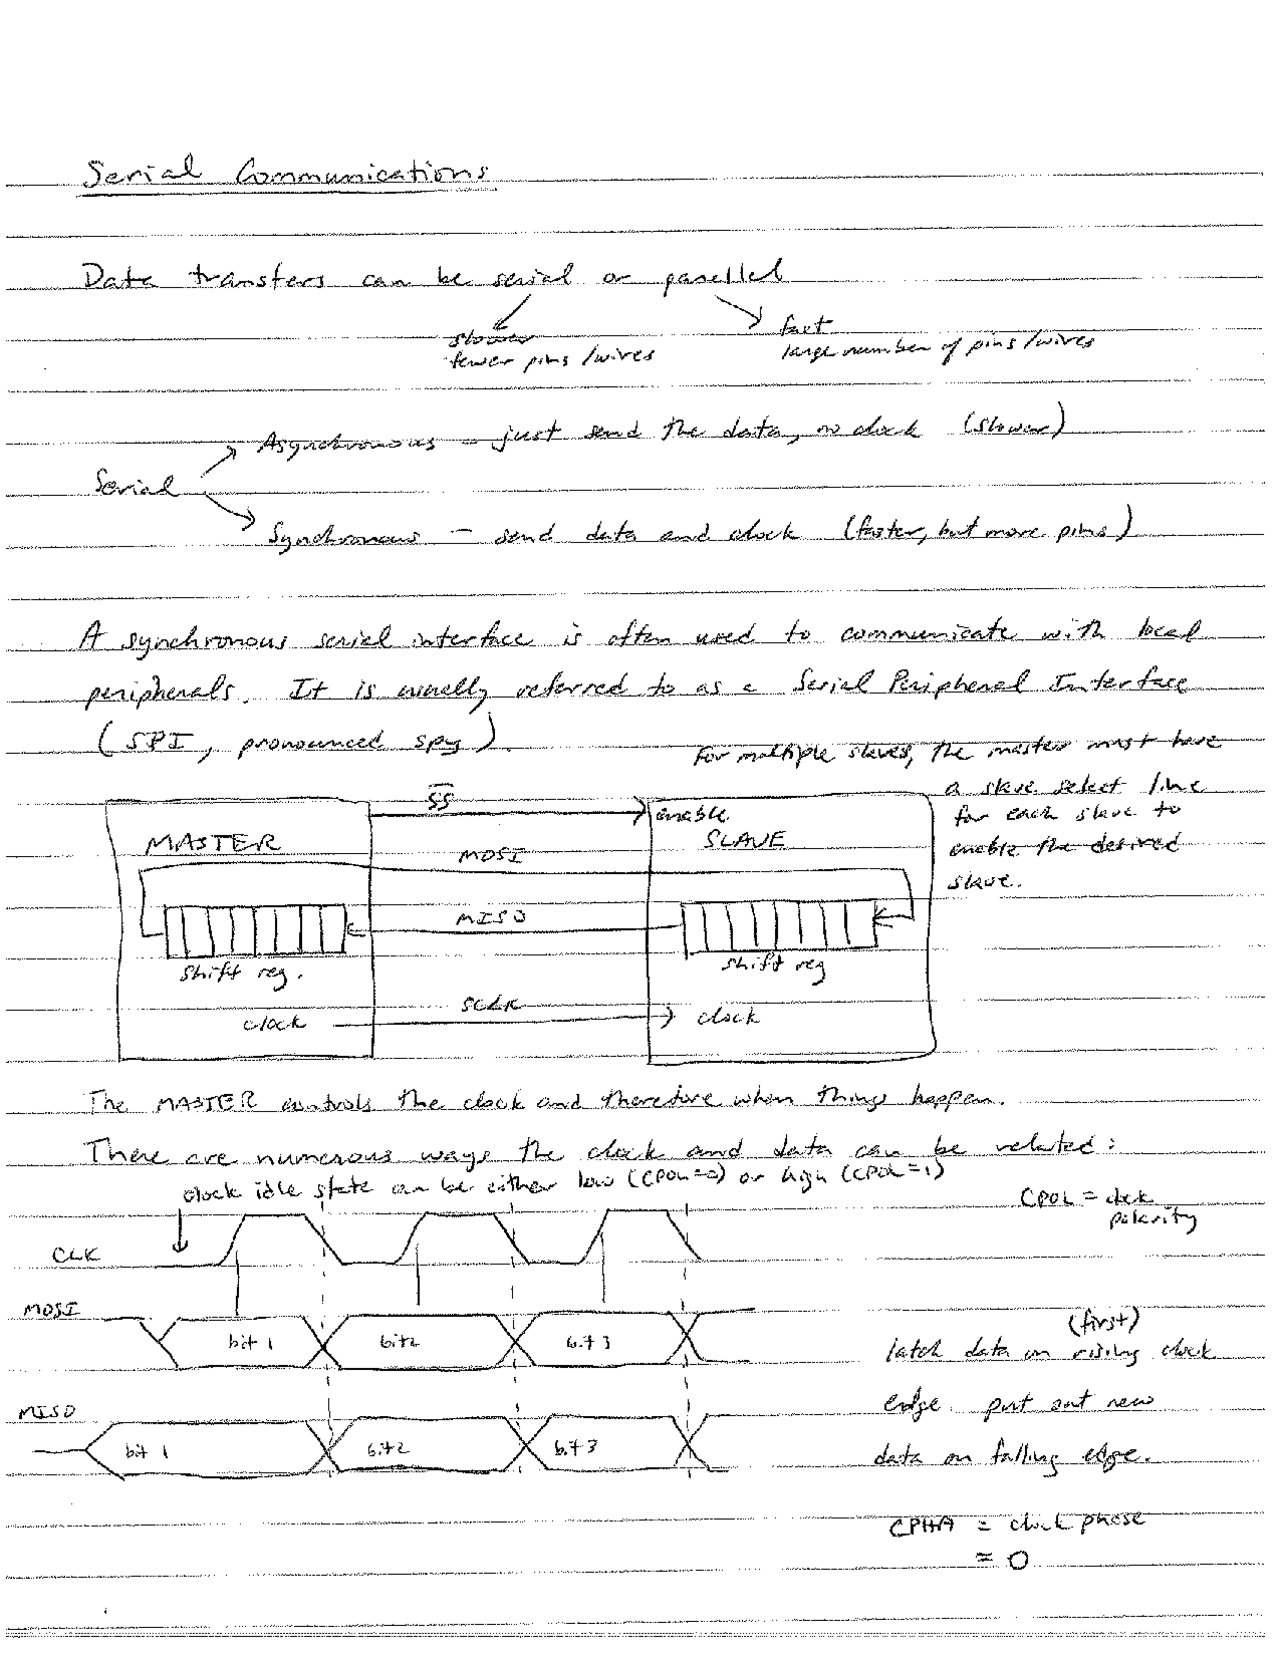 Serial Communications
Data transfers can be serial or parellel
slower
fewer pins/wires
fast
large number of pins/wires
Asynchronous - just send the data, no clock (slower)
Serial
Synchronous - send data and clock (faster, but more pins)
A synchronous serial interface is often used to communicate with local
peripherals. It is usually referred to as a Serial Peripheral Interface
(SPI, pronounced spy).
For multiple slaves, the master must have
a slave select line
for each slave to
enable the desired
slave.
SS
enable
MASTER
SLAVE
MOSI
MISO
shift reg.
shift reg
SCLK
clock
clock
The MASTER controls the clock and therefore when things happen.
There are numerous ways the clock and data can be related:
clock idle state can be either low (CPOL=0) or high (CPOL=1)
CPOL = clock
polarity
CLK
MOSI
bit 1
bit2
bit 3
(first)
latch data on rising clock
edge. put out new
data on falling edge.
MISO
bit 1
bit2
bit 3
CPHA = clock phase
= 0